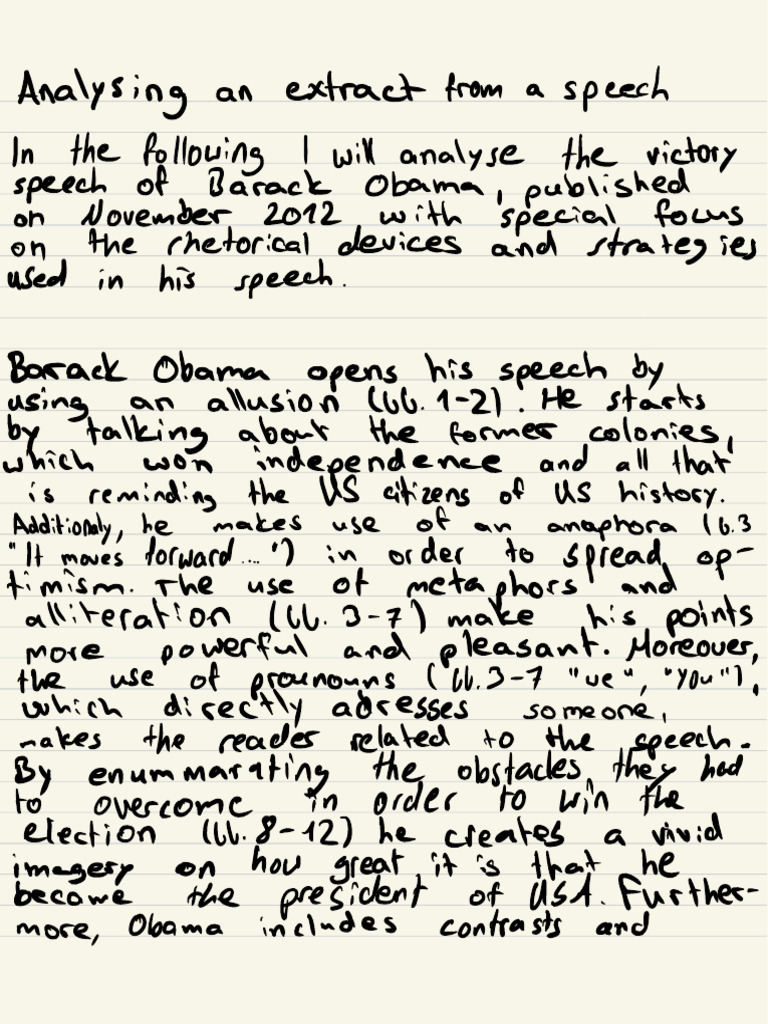 Analysing an extract from a speech
In the following I will analyse the victory
speech of Barack Obama, published
on November 2012 with special focus
on the rhetorical devices and strategies
used in his speech.
Barack Obama opens his speech by
using an allusion (ll. 1-2). He starts
by talking about the former colonies,
which won independence and all that
is reminding the US citizens of US history.
Additionaly, he makes use of an anaphora (l.3
"It moves forward...") in order to spread op-
timism. The use of metaphors and
alliteration (ll. 3-7) make his points
more powerful and pleasant. Moreover,
the use of prounouns (ll.3-7 "we", "you"),
which directly adresses someone,
makes the reader related to the speech.
By enummarating the obstacles, they had
to overcome in order to win the
election (ll. 8-12) he creates a vivid
imagery on how great it is that he
become the president of USA. Further-
more, Obama includes contrasts and